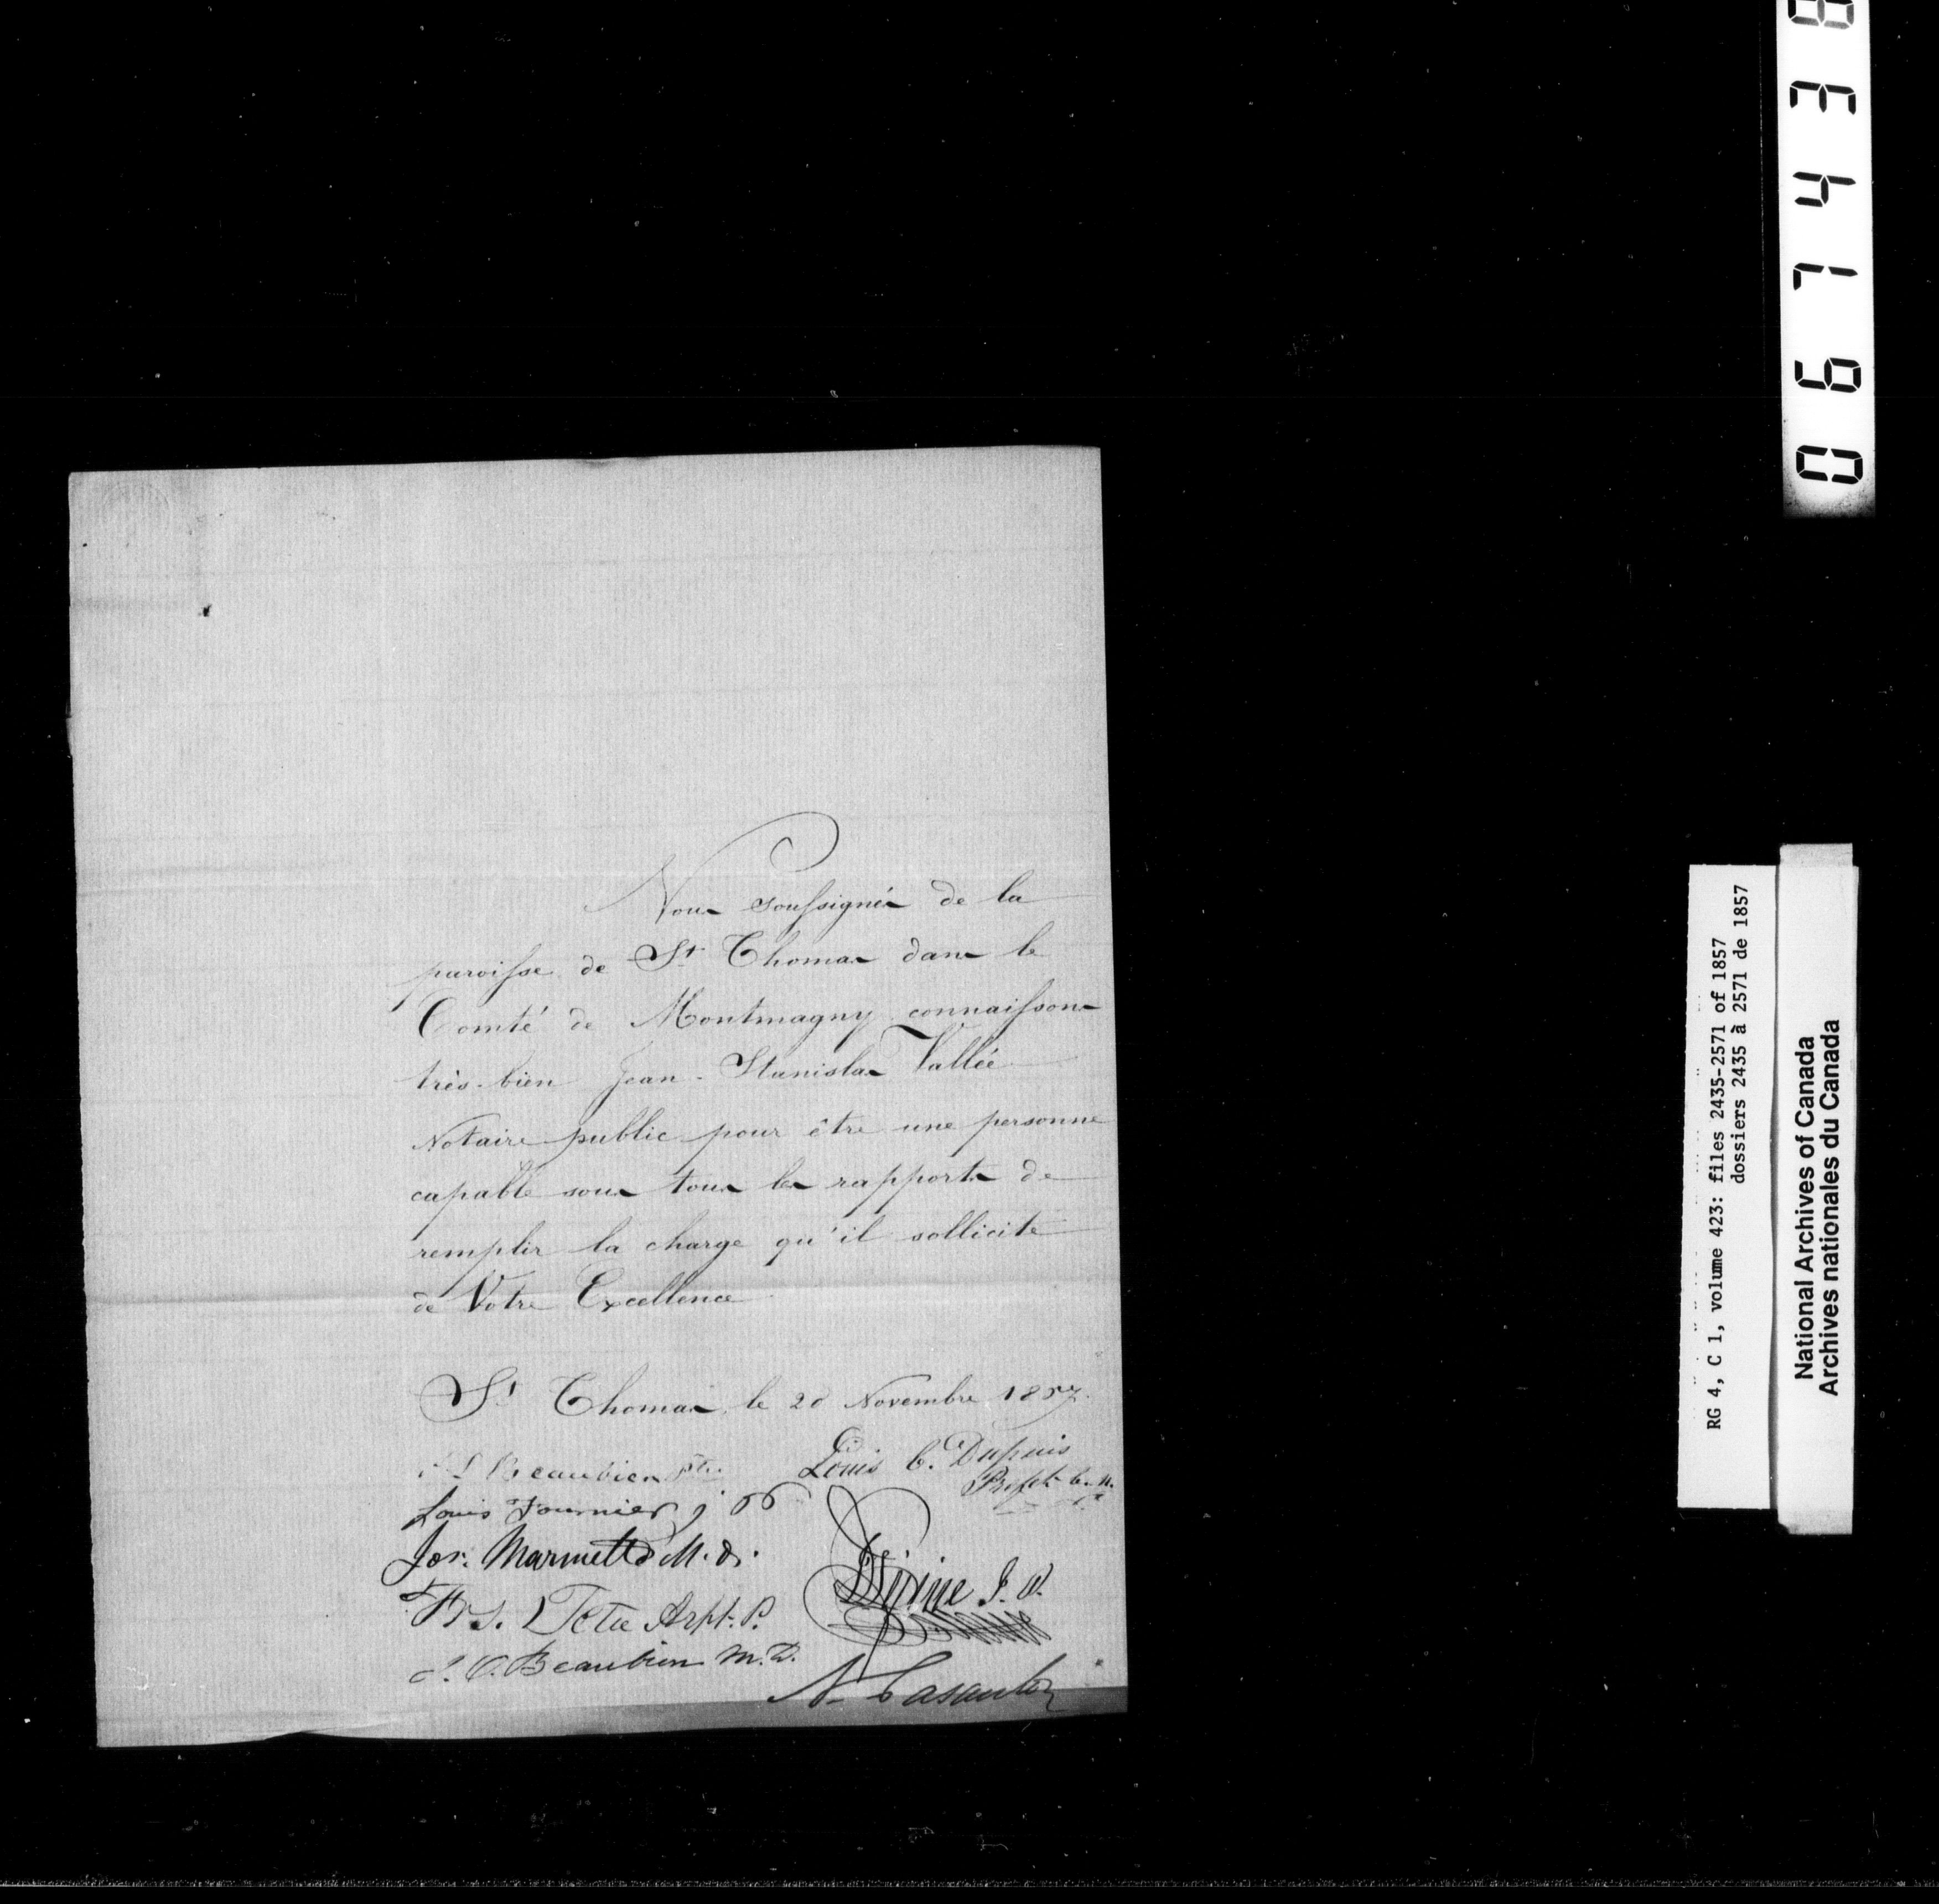 Nous soussignés de la
paroisse de St Thomas dans le
Comté de Montmagny connaissons
très-bien Jean-Stanislas Vallée
Notaire public pour être une personne
capable sous tous les rapports de
remplir la charge qu'il sollicite
de Votre Excellence
St Thomas, le 20 Novembre 1857.
Beaubien Ptre
Louis C. Dupuis
Louis Fournier
Jos. Marmette M.D.
F. S. Têtu Arpt. P.
Beaubien M.D.
N. Casault
0 6 7 4 3 8
RG 4, C 1, volume 423: files 2435-2571 of 1857
dossiers 2435 à 2571 de 1857
National Archives of Canada
Archives nationales du Canada